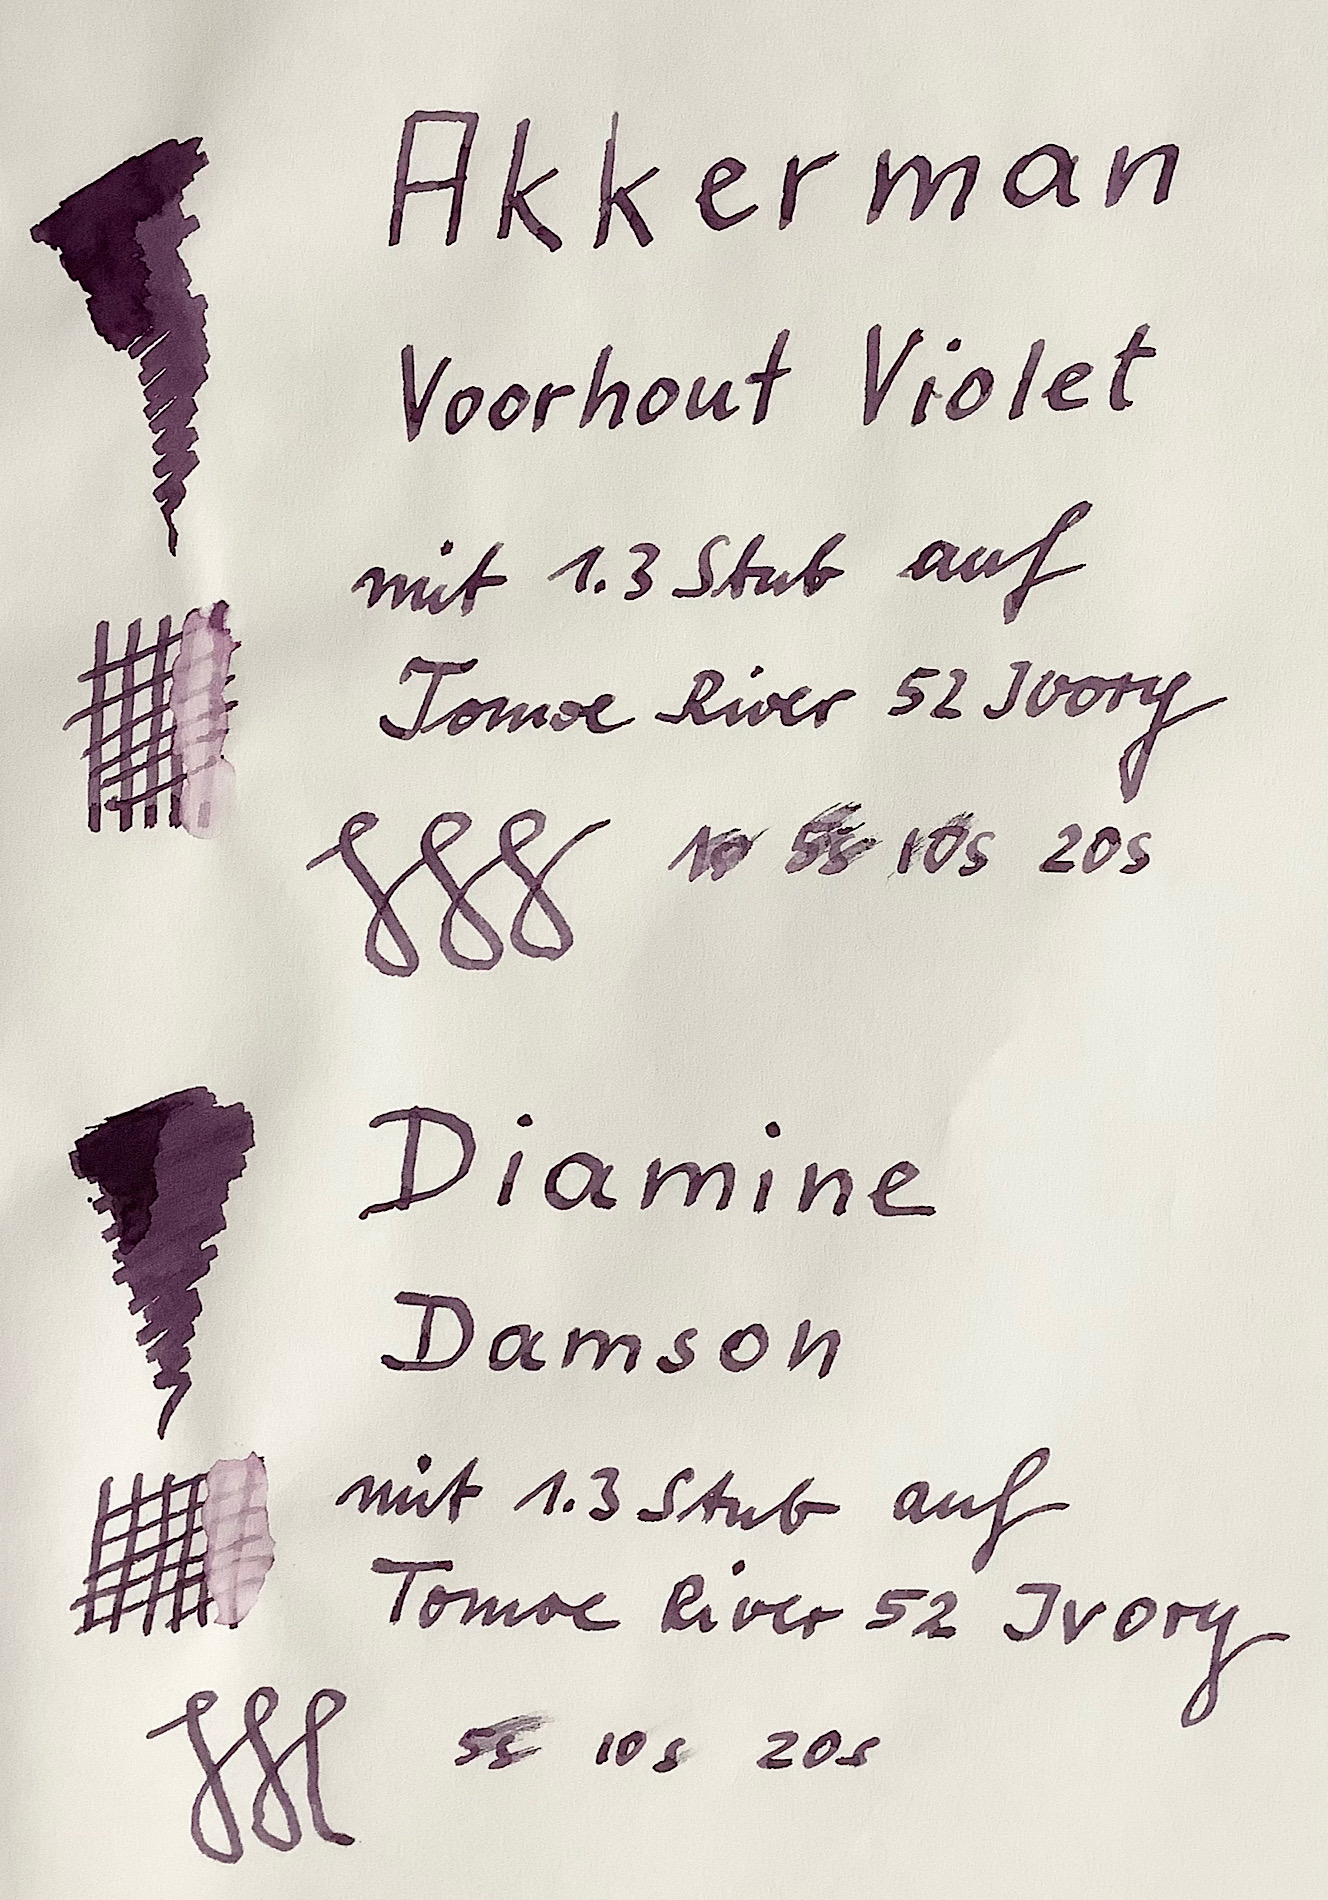 Akkerman
Voorhout Violet
mit 1.3 Stub auf
Tomoe River 52 Ivory
5s 10s 20s
Diamine
Damson
mit 1.3 Stub auf
Tomoe River 52 Ivory
5s 10s 20s